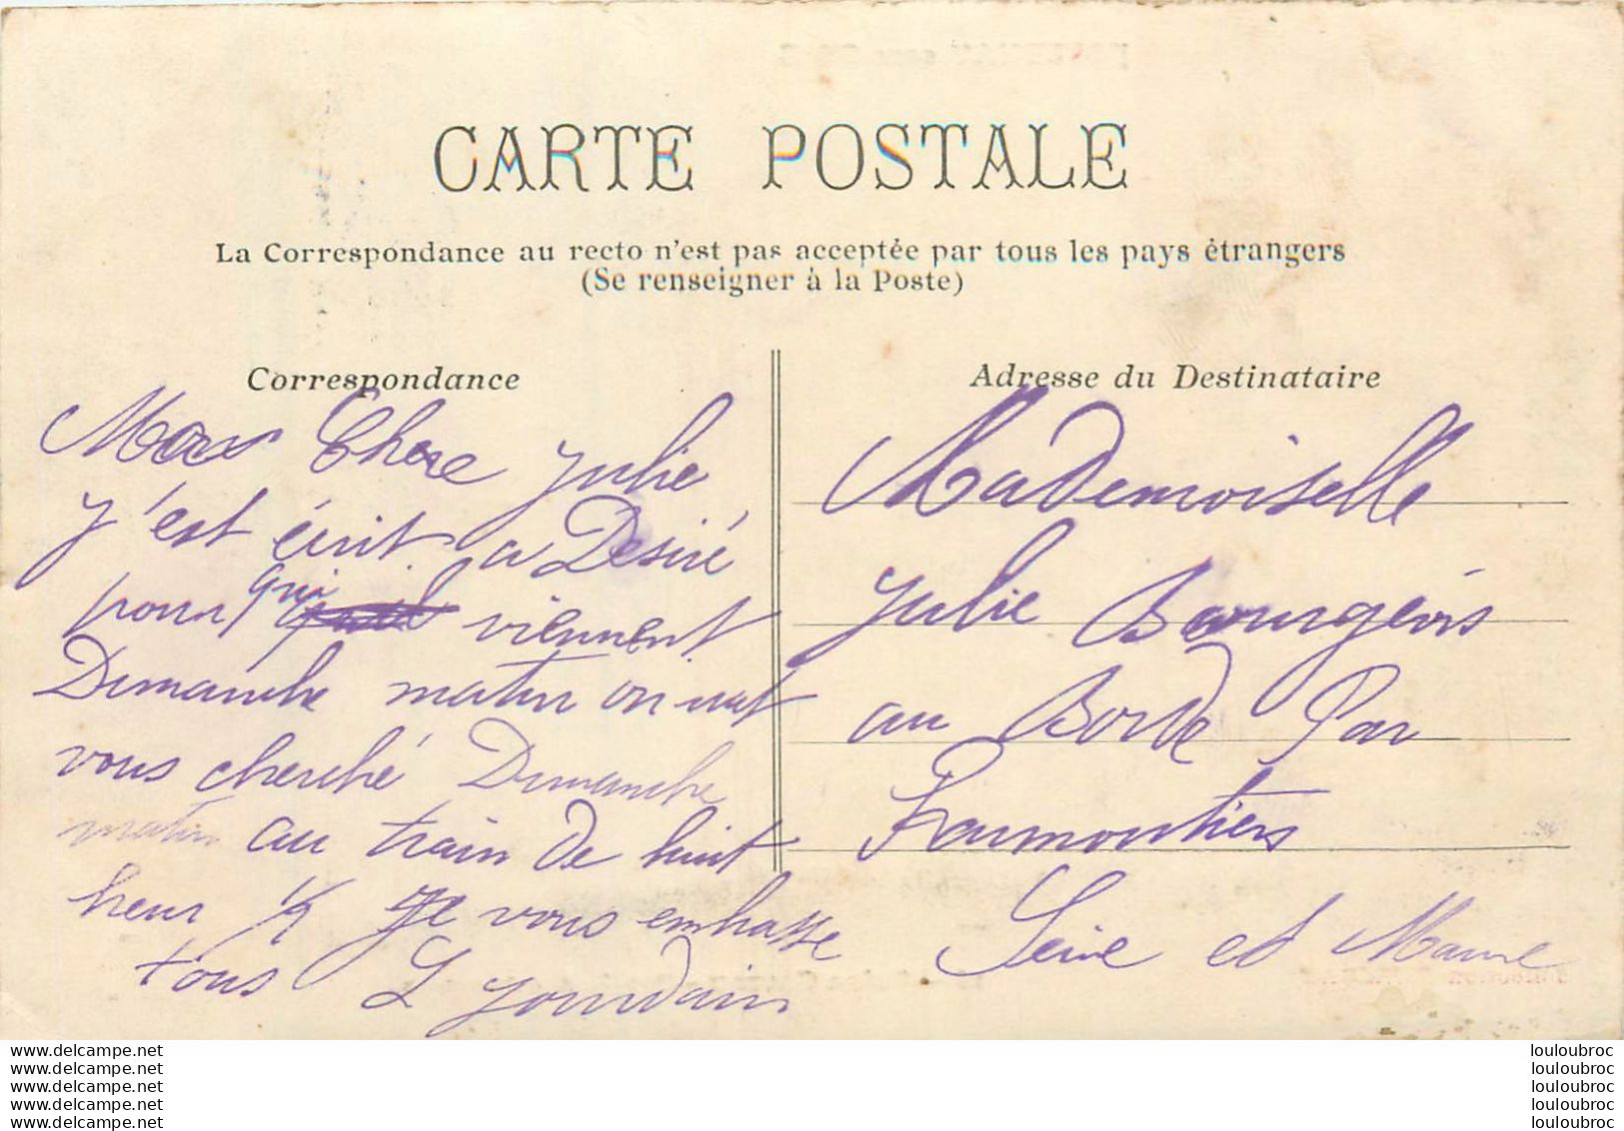 CARTE POSTALE
La Correspondance au recto n'est pas acceptée par tous les pays étrangers
(Se renseigner à la Poste)
Correspondance
Chere Julie
j'est écrit a Desiré
pour qui viennent
Dimanche matin on vut
vous cherché Dimanche
matin au train de huit
heur ½ Je vous embrasse
tous L Jourdain
Adresse du Destinataire
Mademoiselle
Julie Bourgeois
au Borde Par
Farmoutiers
Seine et Marne
www.delcampe.net
www.delcampe.net
www.delcampe.net
www.delcampe.net
www.delcampe.net
louloubroc
louloubroc
louloubroc
louloubroc
louloubroc